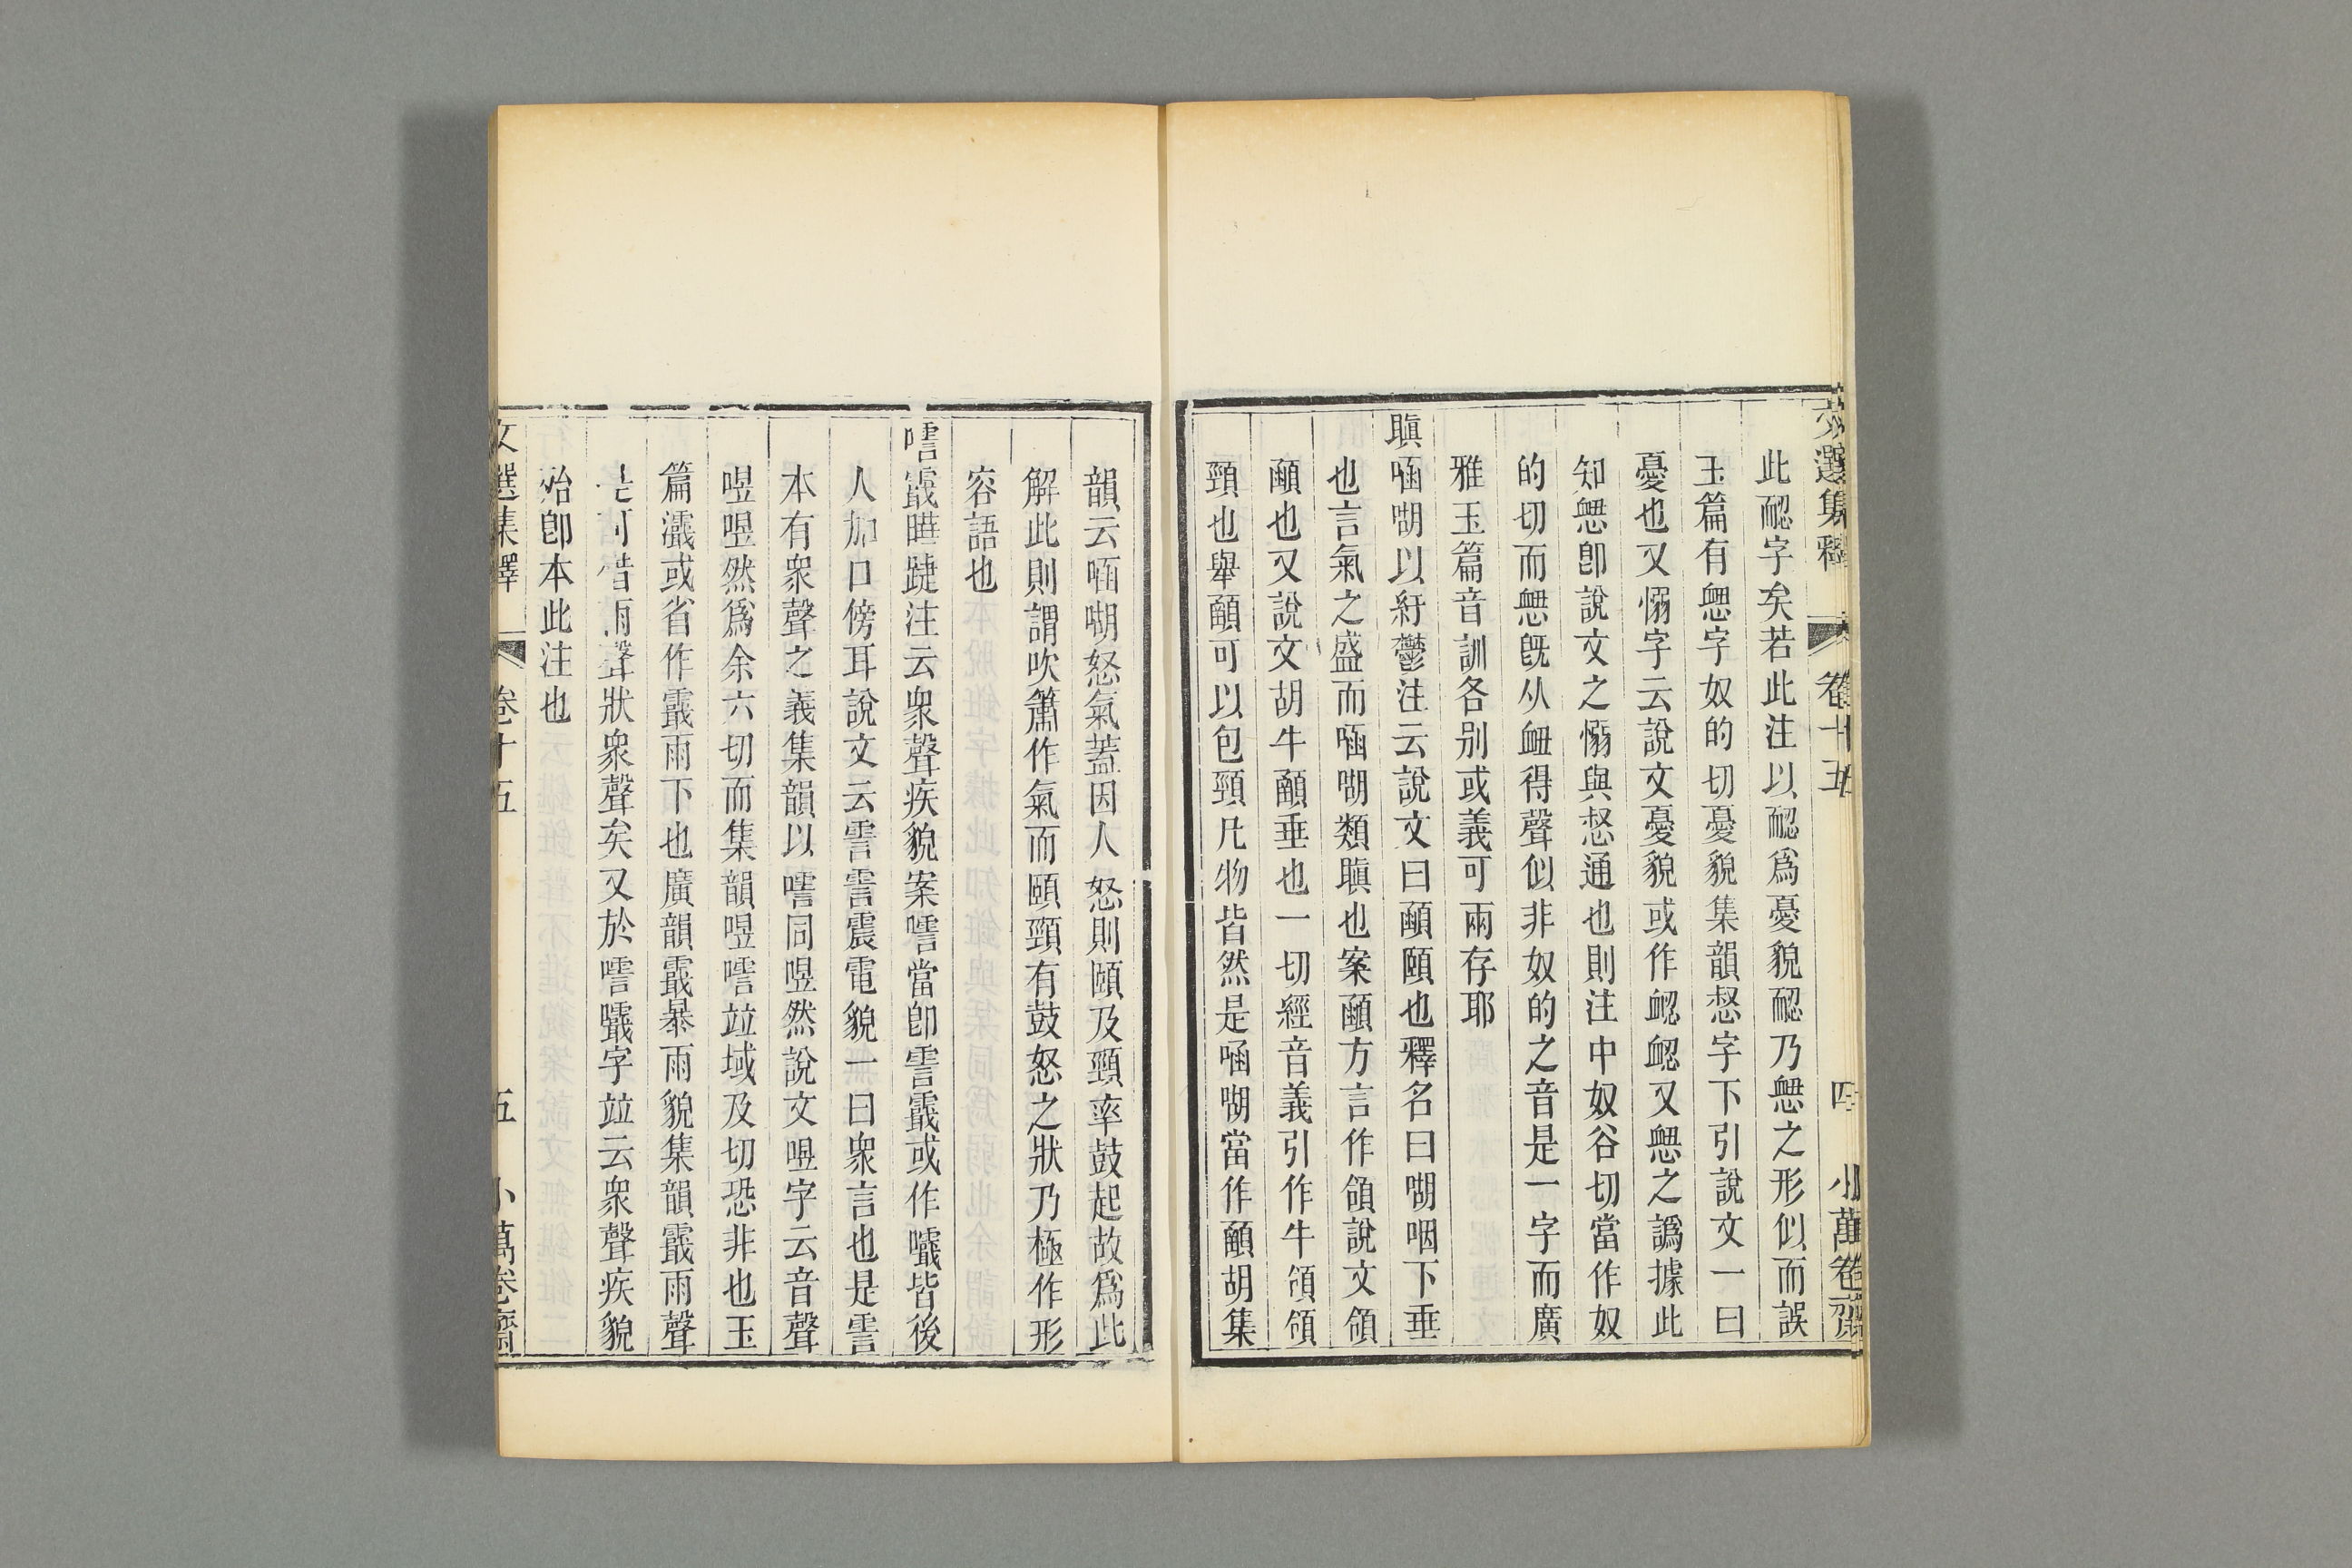 文選集釋 卷十五 四 小萬卷齋
此㥾字矣若此注以㥾爲憂貌㥾乃惄之形似而誤
玉篇有惄字奴的切憂貌集韻惄字下引說文一曰
憂也又愵字云說文憂貌或作 又 之譌據此
知 卽說文之愵與惄通也則注中奴谷切當作奴
的切而 旣从衂得聲似非奴的之音是一字而廣
雅玉篇音訓各別或義可兩存耶
瞋㖤㗅以紆鬱注云說文曰顄頤也釋名曰㗅咽下垂
也言氣之盛而㖤㗅類瞋也案顄方言作頷說文頷
顄也又說文胡牛顄垂也一切經音義引作牛頷頷
頸也舉顄可以包頸凡物皆然是㖤㗅當作顄胡集
韻云㖤㗅怒氣蓋因人怒則頤及頸率鼓起故爲此
解此則謂吹簫作氣而頤頸有鼓怒之狀乃極作形
容語也
嘒霵曄踕注云衆聲疾貌案 當卽霅霵或作 皆後
人加口傍耳說文云霅霅震電貌一曰衆言也是霅
本有衆聲之義集韻以 同喅然說文喅字云音聲
喅喅然爲余六切而集韻喅 竝域及切恐非也玉
篇濈或省作霵雨下也廣韻霵暴雨貌集韻霵雨聲
是可借雨聲狀衆聲矣又於 字竝云衆聲疾貌
殆卽本此注也
文選集釋 卷十五 五 小萬卷齋